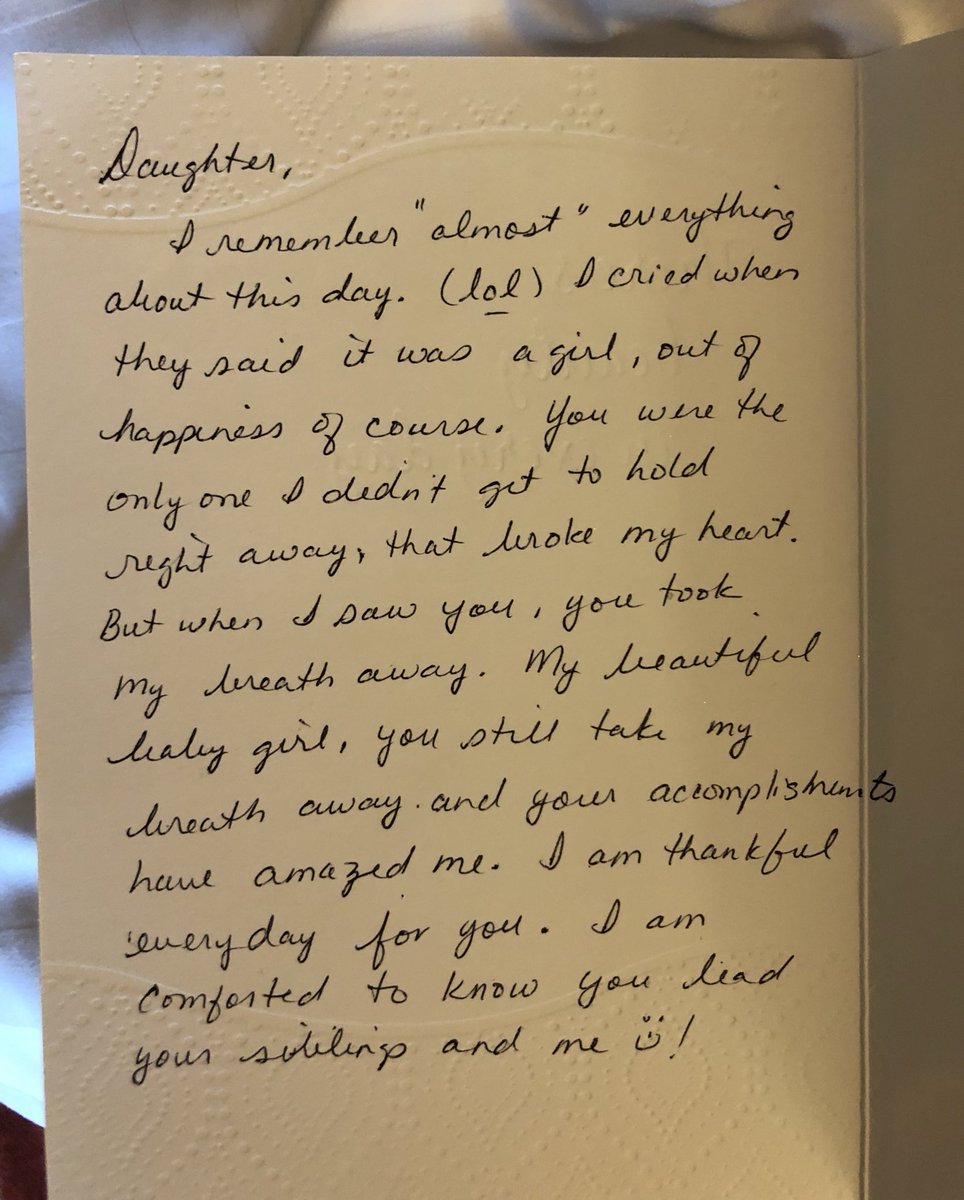 Daughter,
I remember "almost" everything
about this day. (lol) I cried when
they said it was a girl, out of
happiness of course. You were the
only one I didn't get to hold
right away, that broke my heart.
But when I saw you, you took
my breath away. My beautiful
baby girl, you still take my
breath away. and your accomplishments
have amazed me. I am thankful
everyday for you. I am
comforted to know you lead
your siblings and me ☺!